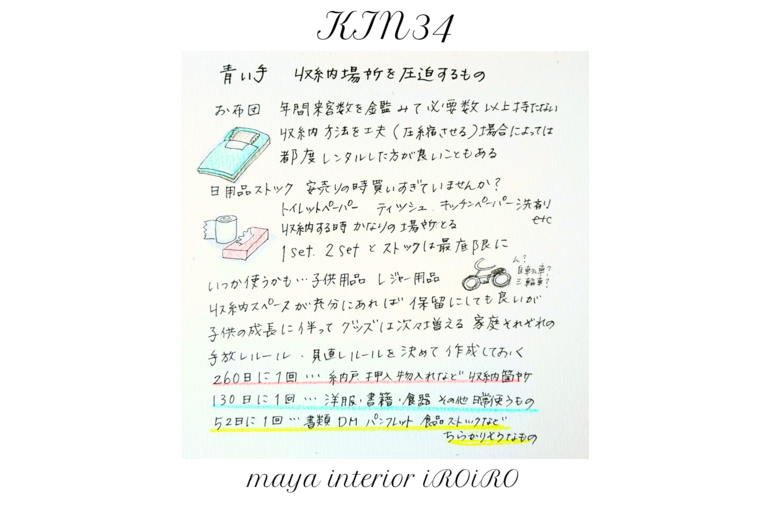 KIN34
青い手 収納場所を圧迫するもの
お布団 年間来客数を金鑑みて必要数以上持たない
収納方法を工夫(圧縮させる)場合によっては
都度レンタルした方が良いこともある
日用品ストック 安売りの時買いすぎていませんか?
トイレットペーパー ティッシュ キッチンペーパー 洗剤
etc
収納する時かなりの場所とる
1set. 2setとストックは最底限に
いつか使うかも…子供用品 レジャー用品
ん?
自転車?
三輪車?
収納スペースが充分にあれば保留にしても良いが
子供の成長に伴ってグッズは次々増える 家庭それぞれの
手放しルール・見直しルールを決めて作成しておく
260日に1回…納戸.押入.物入れなど収納箇所
130日に1回…洋服・書籍・食器 その他日常使うもの
52日に1回…書類 DM パンフレット 食品ストックなど
ちらかりそうなもの
maya interior iROiRO